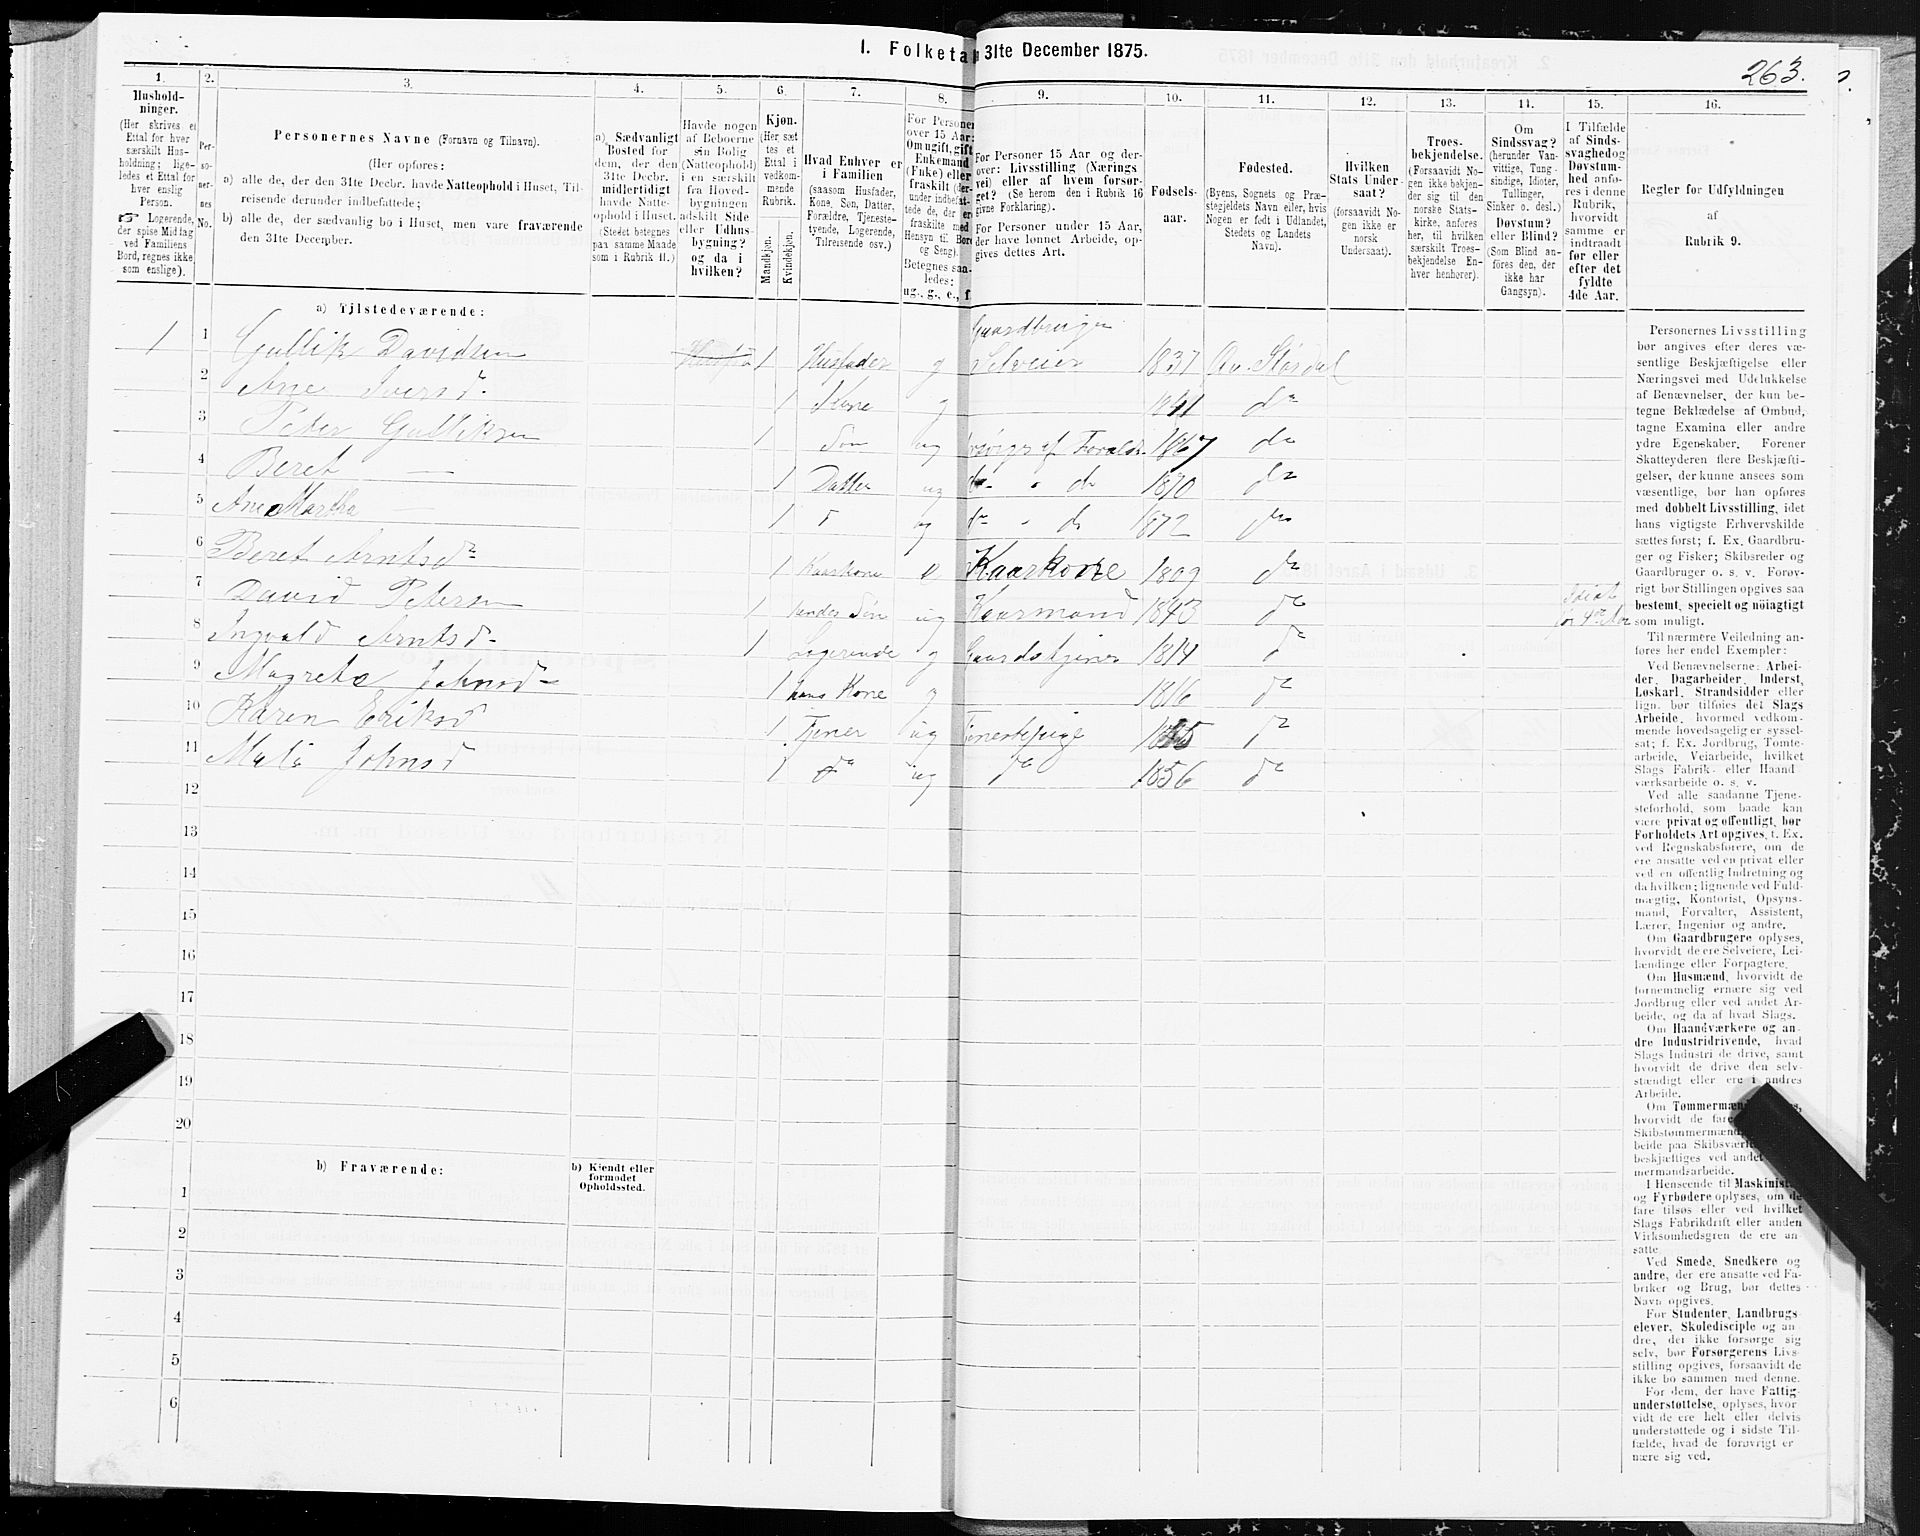 I. Folketa 31te December 1875.
263.
1. 2. 3. 4. 5. 6. 7. 8. 9. 10. 11. 12. 13. 14. 15. 16.
Hushold-
ninger.
(Her skrives et
Ettal for hver
særskilt Hus-
holdning; lige-
ledes et Ettal for
hver enslig
Person.
☞ Logerende,
der spise Middag
ved Familiens
Bord, regnes ikke
som enslige).
Per-
so-
ner-
nes
No.
Personernes Navne (Fornavn og Tilnavn).
(Her opføres:
a) alle de, der den 31te Decbr. havde Natteophold i Huset, Til-
reisende derunder indbefattede;
b) alle de, der sædvanlig bo i Huset, men vare fraværende
den 31te December.
a) Sædvanligt
Bosted for
dem, der den
31te Decbr.
midlertidigt
havde Natte-
ophold i Huset.
(Stedet betegnes
paa samme Maade
som i Rubrik 11.)
Havde nogen
af Beboerne
sin Bolig
(Natteophold)
i en særskilt
fra Hoved-
bygningen
adskilt Side
eller Udhus-
bygning?
og da i
hvilken?
Kjøn.
(Her sæt-
tes et
Ettal i
vedkom-
mende
Rubrik.
Mandkjøn.
Kvindekjøn.
Hvad Enhver er
i Familien
(saasom Husfader,
Kone, Søn, Datter,
Forældre, Tjeneste-
tyende, Logerende,
Tilreisende osv.)
For Personer
over 15 Aar:
Om ugift, gift,
Enkemand
(Enke) eller
fraskilt (der-
under indbefat-
tede de, der er
fraskilte med
Hensyn til Bord
og Seng).
Betegnes saa-
ledes:
ug., g., e., f.
For Personer 15 Aar og der-
over: Livsstilling (Nærings-
vei) eller af hvem forsør-
get? (Se herom den i Rubrik 16
givne Forklaring).
For Personer under 15 Aar,
der have lønnet Arbeide, op-
gives dettes Art.
Fødsels-
aar.
Fødested.
(Byens, Sognets og Præ-
stegjeldets Navn eller, hvis
Nogen er født i Udlandet,
Stedets og Landets
Navn).
Hvilken
Stats Under-
saat?
(forsaavidt No-
gen ikke er
norsk
Undersaat).
Troes-
bekjendelse.
(Forsaavidt No-
gen ikke bekjen-
der sig til den
norske Stats-
kirke, anføres
her, til hvilken
særskilt Troes-
bekjendelse En-
hver henhører).
Om
Sindssvag?
(herunder Van-
vittige, Tung-
sindige, Idioter,
Tullinger,
Sinker o. desl.)
Døvstum?
eller Blind?
(Som Blind an-
føres den, der
ikke har
Gangsyn).
I Tilfælde
af Sinds-
svaghed og
Døvstum-
hed anfø-
res i denne
Rubrik,
hvorvidt
samme er
indtraadt
før eller
efter det
fyldte
4de Aar.
Regler for Udfyldningen
af
Rubrik 9.
a) Tilstedeværende:
Gaardbruger
1 1 Gullik Davidsen 1 Husfader g Selveier 1837
2 Ane Iversd 1 Kone g 1841 do
3 Peter Gulliksen 1 Søn ug 1867 do
4 Beret — 1 Datter ug do 1870 do
5 Ane Martha — 1 d ug do 1872 do
6 Beret Arntsd 1 Kaarkone e Kaarkone 1809 do
7 David Petersen 1 hendes Søn ug Kaarmand 1843 do
8 Ingvald Arntsd 1 Logerende g Gaardstjener 1814 do
9 Magrete Johnsd 1 hans Kone g 1816 do
10 Karen Eriksd 1 Tjener ug Tjenestepige do
11 Johnsd 1 do ug do 1856 do
12
13
14
15
16
17
18
19
20
b) Fraværende:
b) Kjendt eller
formodet
Opholdssted.
1
2
3
4
5
6
Personernes Livsstilling
bør angives efter deres væ-
sentlige Beskjæftigelse eller
Næringsvei med Udelukkelse
af Benævnelser, der kun be-
tegne Beklædelse af Ombud,
tagne Examina eller andre
ydre Egenskaber. Forener
Skatteyderen flere Beskjæfti-
gelser, der kunne ansees som
væsentlige, bør han opføres
med dobbelt Livsstilling, idet
hans vigtigste Erhvervskilde
sættes først; f. Ex. Gaardbru-
ger og Fisker; Skibsreder og
Gaardbruger o. s. v. Forøv-
rigt bør Stillingen opgives saa
bestemt, specielt og nöiagtigt
som muligt.
Til nærmere Veiledning an-
føres her endel Exempler:
Ved Benævnelserne: Arbei-
der, Dagarbeider, Inderst,
Løskarl, Strandsidder eller
lign. bør tilføies det Slags
Arbeide, hvormed vedkom-
mende hovedsagelig er syssel-
sat; f. Ex. Jordbrug, Tomte-
arbeide, Veiarbeide, hvilket
Slags Fabrik- eller Haand-
værksarbeide o. s. v.
Ved alle saadanne Tjene-
steforhold, som baade kan
være privat og offentligt, bør
Forholdets Art opgives, f. Ex.
ved Regnskabsførere, om de
ere ansatte ved en privat eller
ved en offentlig Indretning og
da hvilken; lignende ved Fuld-
mægtig, Kontorist, Opsyns-
mand, Forvalter, Assistent,
Lærer, Ingeniør og andre.
Om Gaardbrugere oplyses,
hvorvidt de ere Selveiere, Lei-
lændinge eller Forpagtere.
Om Husmænd, hvorvidt de
fornemmelig ernære sig ved
Jordbrug eller ved andet Ar-
beide, og da af hvad Slags.
Om Haandværkere og an-
dre Industridrivende, hvad
Slags Industri de drive, samt
hvorvidt de drive den selv-
stændigt eller ere i andres
Arbeide.
Om Tømmermænd
hvorvidt de fare
Skibstømmermænd
beide paa Skibsværft
beskjæftiges ved andet
mermandsarbeide.
I Henseende til Maskinister
og Fyrbødere oplyses, om de
fare tilsøs eller ved hvilket
Slags Fabrikdrift eller anden
Virksomhedsgren de ere an-
satte.
Ved Smede, Snedkere og
andre, der ere ansatte ved Fa-
briker og Brug, bør dettes
Navn opgives.
For Studenter, Landbrugs-
elever, Skoledisciple og an-
dre, der ikke forsørge sig
selv, bør Forsørgerens Livs-
stilling opgives, forsaavidt de
ikke bo sammen med denne.
For dem, der have Fattig-
understøttelse, oplyses, hvor-
vidt de ere helt eller delvis
understøttede og i sidste Til-
fælde, hvad de forøvrigt er-
nære sig ved.